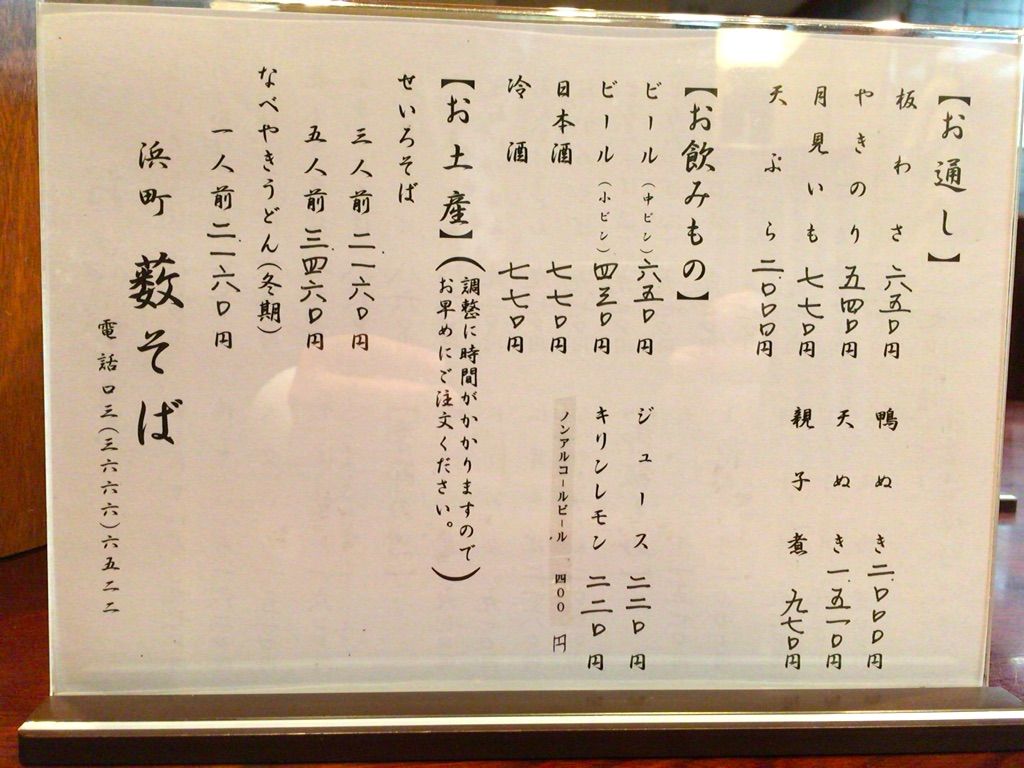 【お通し】
板わさ 六五〇円
やきのり 五四〇円
月見いも 七七〇円
天ぷら 二、〇〇〇円
鴨ぬき 二、〇〇〇円
天ぬき 一、五一〇円
親子煮 九七〇円
【お飲みもの】
ビール(中ビン) 六五〇円
ビール(小ビン) 四三〇円
日本酒 七七〇円
冷酒 七七〇円
ジュース 二二〇円
キリンレモン 二二〇円
ノンアルコールビール 四〇〇円
【お土産】(調整に時間がかかりますので
お早めにご注文ください。)
せいろそば
三人前 二、一六〇円
五人前 三、四六〇円
なべやきうどん(冬期)
一人前 二、一六〇円
浜町 藪そば
電話〇三(三六六六)六五二二